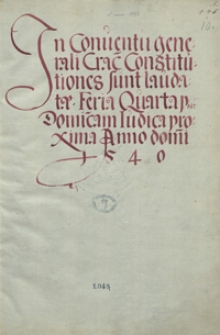 In Conventu gene
rali Crac̄ Constitu
tiones sunt lauda
tæ. Feria Quarta p.
Dominicam Iudica pro
xima Anno domī
1540